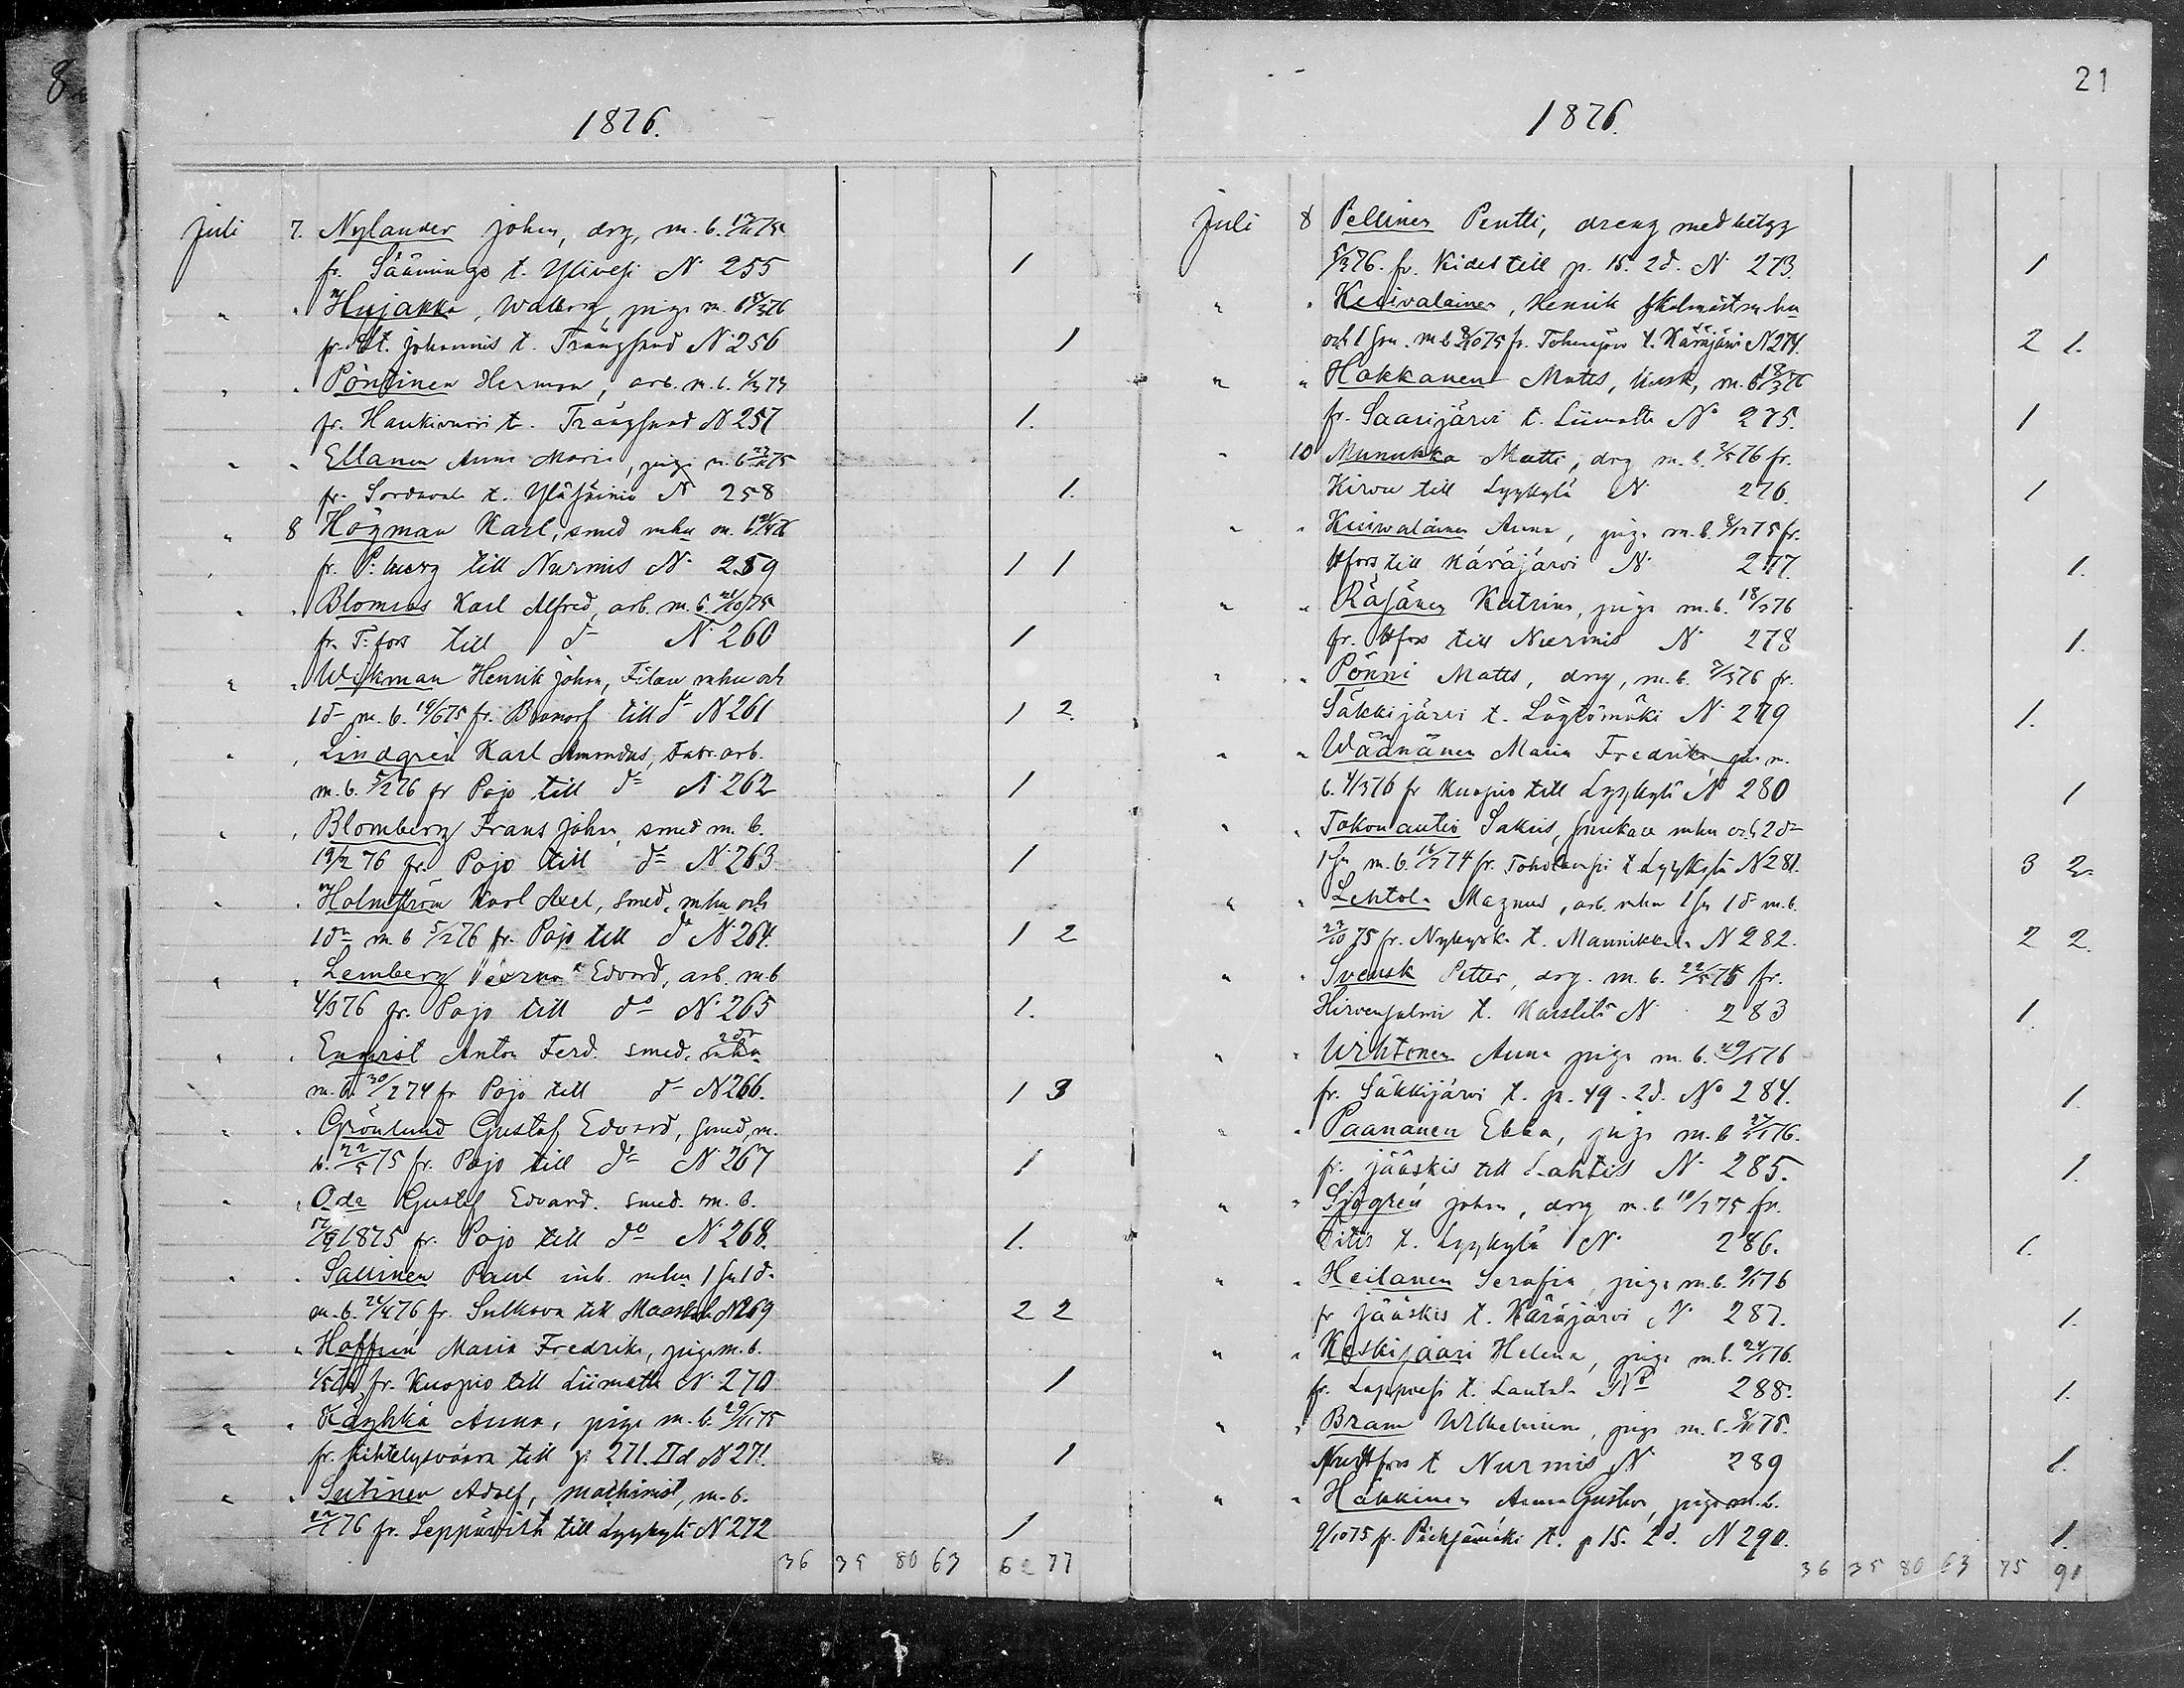 8
1876.
juli 7. Nylander johan, drg, m. b. /75
fr. Säämings t. Ylivesi N. 255 1
" " Hujakka, Walborg piga m. b 5/3 76
fr. St. johannis t. Trångsund N. 256 1
" " Pöntinen Herman, arb. m. b. 74
fr. Haukivuori t. Trångsund N 257 1.
" " Ellanen Anna Maria, piga m. b 75
fr. Sordavala t. Yläsäiniö N 258 1.
" 8 Högman Karl, smed mhu m. b. 76
fr. P:burg till Nurmis N. 259 1 1
" " Blomros Karl Alfred, arb. m. b. /10 75
fr. T:fors till do N. 260 1
" " Wikman Henrik johan, Filare mhu och
1 dr m. b. 19/6 75 fr. till do N 261 1 2.
" " Lindgren Karl Amandus, Fabr. arb.
m. b. 5/2 76 fr Pojo till do N. 262 1
" " Blomberg Frans johan, smed m. b.
19/2 76 fr. Pojo till do N. 263 1
" " Holmström Karl Axel, smed, mhu och
1 dr m. b 5/2 76 fr. Pojo till do N. 264. 1 2
" " Lemberg Verner Edvard, arb. m. b
4/3 76 fr. Pojo till do N. 265 1.
" " Enqvist Anton Ferd. smed. mhu 2 dr
m. b. 30/2 74 fr Pojo till do N 266. 1 3
" " Grönlund Gustaf Edvard, smed, m.
b. 22/5 75 fr. Pojo till do N. 267 1
" " Ode Gustaf Edvard. smed. m. b.
17/9 1875 fr. Pojo till do N. 268. 1.
" " Sallinen Paul inh. mhu 1 sn 1 d.
m. b. 26/4 76 fr. Sulkava till N 269 2 2
" " Haffrén Maria Fredrika, piga m. b.
fr. Kuopio till Liimatta N. 270 1
" " Käyhkä Anna, piga m. b. 29/11 75
fr. Kihtelysvaara till p. 271. II d N 271. 1
" " Sutinen Adolf, machinist, m. b.
76 fr. Leppävirta till Lyykylä N 272 1
36 35 80 63 62 77
21
1876.
Juli 8 Pellinen Pentti, dreng med betyg
5/3 76. fr. Kides till p. 15. 2 d. N 273. 1
" " Kuivalainen, Henrik Skolmästare mhu
och 1 son. m b 8/10 75 fr. Tohmajärvi t. Käräjärvi N 274. 2 1.
" " Hakkanen Matts, kusk, m. b. 18/3 76
fr. Saarijärvi t. Liimatta No 275. 1
" 10 Munukka Matti, drg m. b. 2/5 76 fr.
Kirvu till Lyykylä N 276. 1
" " Kuiwalainen Anna, piga m. b. 8/12 75 fr.
Hfors till Käräjärvi N. 277. 1.
" " Räsänen Katrina, piga m. b. 18/3 76
fr. Hfors till Nurmis N. 278 1.
" " Pönni Matts, drg, m. b. 3 76 fr.
Säkkijärvi t. Löytömäki N. 279 1.
" " Wäänänen Maria Fredrika m.
b. 4/3 76 fr Kuopio till Lyykylä No 280 1
" " Tokonautio Sakris, snickare mhu och 2 dr
1 sn m. b. 16/7 74 fr. Toholampi t Lyykylä N 281. 3 2
" " Lehtola Magnus, arb. mhu 1 sn 1 d m. b.
27/10 75 fr. Nykyrka t. Mannikkala N 282. 2 2.
" " Svensk Petter, drg. m. b. 22/5 75 fr.
Hirvensalmi t. Karstilä N. 283 1.
" " Wihtonen Anna piga m. b. 29/5 76
fr. Säkkijärvi t. p. 49. 2 d. No 284. 1.
" " Paananen Ebba, piga m. b 76.
fr. jääskis till Lahtis N. 285. 1.
" " Sjögren johan, drg m. b 10/7 75 fr.
Iitis t. Lyykylä N. 286. 1.
" " Heilanen Serafia, piga m. b. 76
fr jääskis t. Käräjärvi N. 287. 1.
" " Keskisaari Helena, piga m. b. 24/ 76.
fr. Lappvesi t. Lautala No 288. 1.
" " Bram Wilhelmina, piga m. b. 75.
fr Hfors t Nurmis N 289 1.
" " Häkkinen Anna Gustava, piga m. b.
9/10 75 fr. t. p 15. 2 d. N 290. 1.
36 35 80 63 75 91